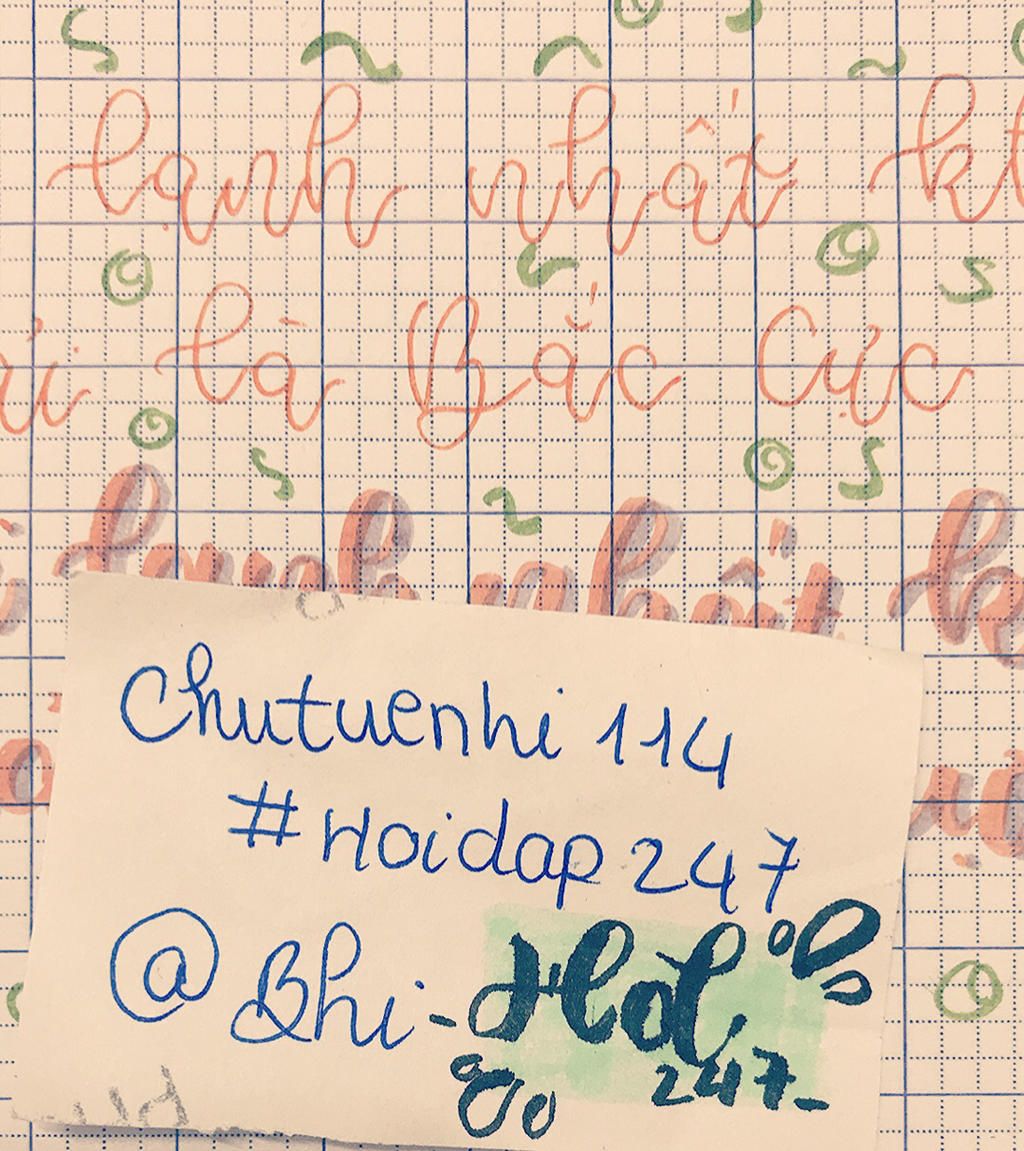 lạnh nhất
là Bắc Cực
lạnh nhất
Chutuenhi 114
#Hoidap 247
@Bhi-
247-